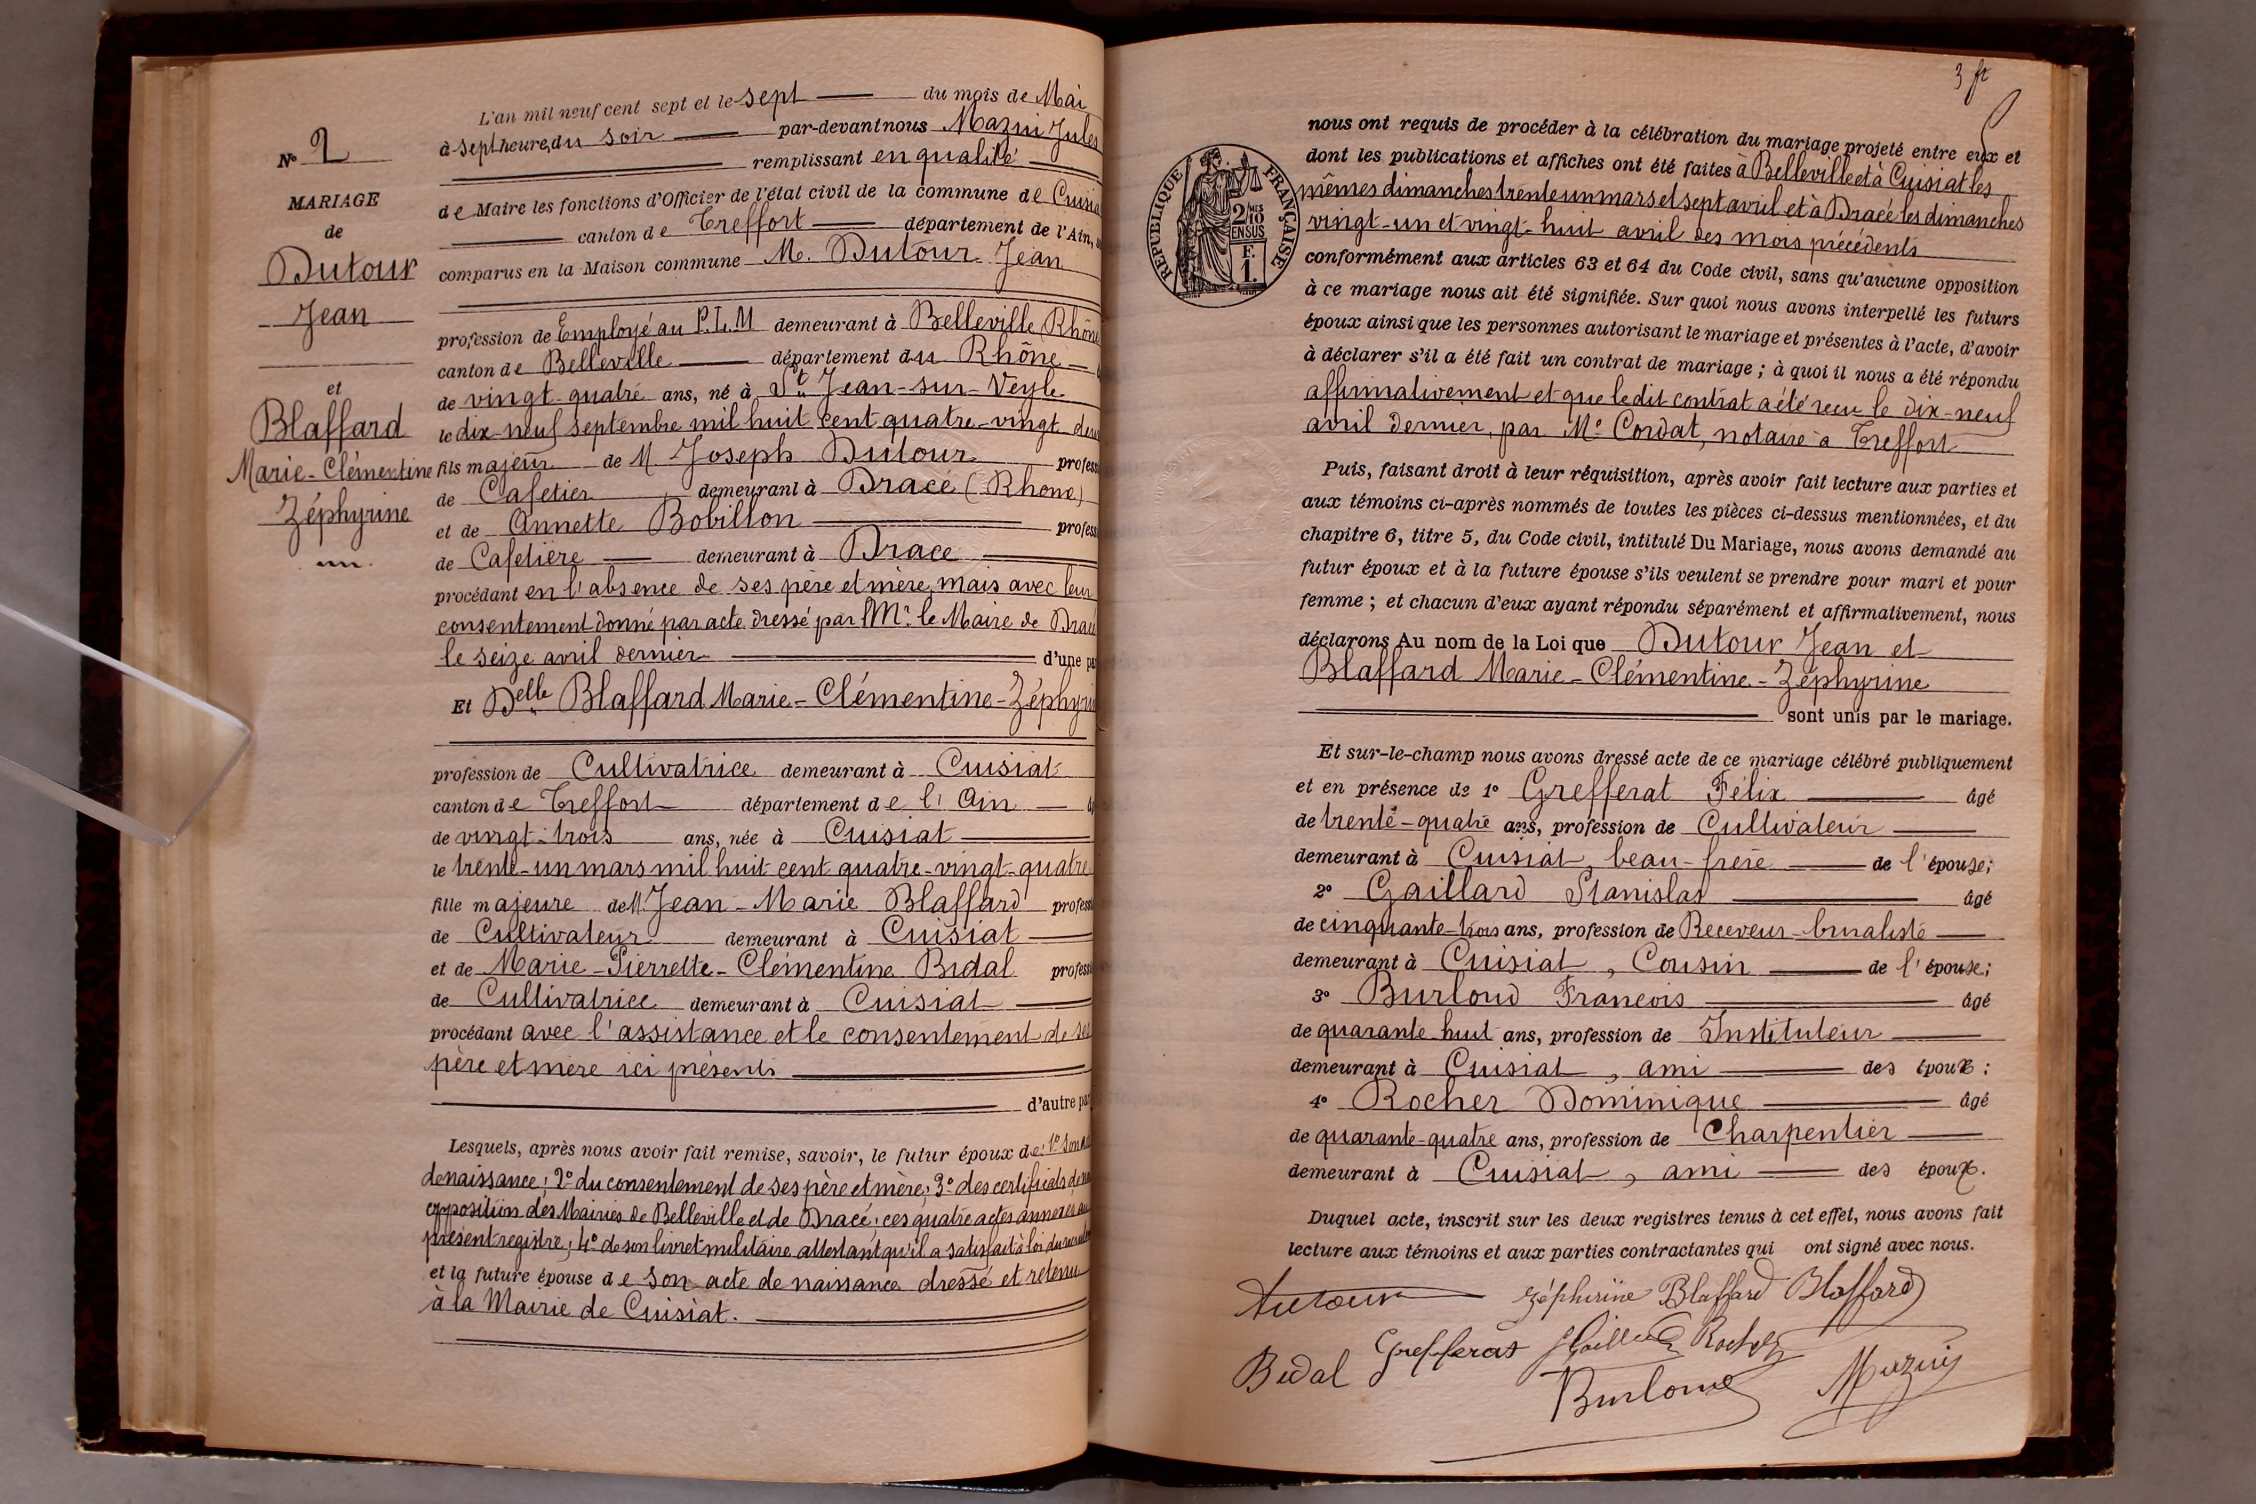 L'an mil neuf cent sept et le sept du mois de Mai
à sept heures du soir par-devant nous Mazui Jules
remplissant en qualité
de Maire les fonctions d'Officier de l'état civil de la commune de Cuisiat
canton de Treffort département de l'Ain,
comparus en la Maison commune M. Dutour Jean
profession de Employé au P.L.M demeurant à Belleville (Rhône
canton de Belleville département du Rhône
de vingt-quatre ans, né à St Jean-sur-Veyle
le dix-neuf septembre mil huit cent quatre-vingt deux
fils majeur de M Joseph Dutour profess
de Cafetier demeurant à Dracé (Rhone)
et de Annette Bobillon profess
de Cafetière demeurant à Dracé
procédant en l'absence de ses père et mère, mais avec leur
consentement donné par acte dressé par Mr. le Maire de Dracé
le seize avril dernier d'une pa
Et Delle Blaffard Marie-Clémentine-Zéphyrin
profession de Cultivatrice demeurant à Cuisiat
canton de Treffort département de l'Ain
de vingt-trois ans, née à Cuisiat
le trente-un mars mil huit cent quatre-vingt-quatre
fille majeure de M. Jean-Marie Blaffard profess
de Cultivateur demeurant à Cuisiat
et de Marie-Pierrette-Clémentine Bidal profess
de Cultivatrice demeurant à Cuisiat
procédant avec l'assistance et le consentement de ses
père et mère ici présents
d'autre par
Lesquels, après nous avoir fait remise, savoir, le futur époux de: 1º son
de naissance; 2º du consentement de ses père et mère; 3º des certificats de non
opposition des Mairies de Belleville et de Dracé; ces quatre actes annexés au
présent registre; 4º de son livret militaire attestant qu'il a satisfait à loi du recrutem
et la future épouse de son acte de naissance dressé et retenu
à la Mairie de Cuisiat.
Nº 2
MARIAGE
de
Dutour
Jean
et
Blaffard
Marie-Clémentine
Zéphyrine
3 ft
nous ont requis de procéder à la célébration du mariage projeté entre eux et
dont les publications et affiches ont été faites à Belleville et à Cuisiat les
mêmes dimanches trente un mars et sept avril et à Dracé les dimanches
vingt-un et vingt-huit avril des mois précédents
conformément aux articles 63 et 64 du Code civil, sans qu'aucune opposition
à ce mariage nous ait été signifiée. Sur quoi nous avons interpellé les futurs
époux ainsi que les personnes autorisant le mariage et présentes à l'acte, d'avoir
à déclarer s'il a été fait un contrat de mariage ; à quoi il nous a été répondu
affirmativement et que le dit contrat a été reçu le dix-neuf
avril dernier, par Me Cordat, notaire à Treffort
Puis, faisant droit à leur réquisition, après avoir fait lecture aux parties et
aux témoins ci-après nommés de toutes les pièces ci-dessus mentionnées, et du
chapitre 6, titre 5, du Code civil, intitulé Du Mariage, nous avons demandé au
futur époux et à la future épouse s'ils veulent se prendre pour mari et pour
femme ; et chacun d'eux ayant répondu séparément et affirmativement, nous
déclarons Au nom de la Loi que Dutour Jean et
Blaffard Marie-Clémentine-Zéphyrine
sont unis par le mariage.
Et sur-le-champ nous avons dressé acte de ce mariage célébré publiquement
et en présence de 1º Grefferat Félix âgé
de trente-quatre ans, profession de Cultivateur
demeurant à Cuisiat, beau-frère de l'épouse;
2º Gaillard Stanislas âgé
de cinquante-trois ans, profession de Receveur-buraliste
demeurant à Cuisiat, Cousin de l'épouse;
3º Burloud François âgé
de quarante huit ans, profession de Instituteur
demeurant à Cuisiat, ami des époux;
4º Rocher Dominique âgé
de quarante-quatre ans, profession de Charpentier
demeurant à Cuisiat, ami des époux.
Duquel acte, inscrit sur les deux registres tenus à cet effet, nous avons fait
lecture aux témoins et aux parties contractantes qui ont signé avec nous.
Dutour Zéphirine Blaffard Blaffard
Bidal Grefferat Gaillard Rocher
Burloud Mazuy
RÉPUBLIQUE FRANÇAISE
2/10 EN SUS
F.
1.